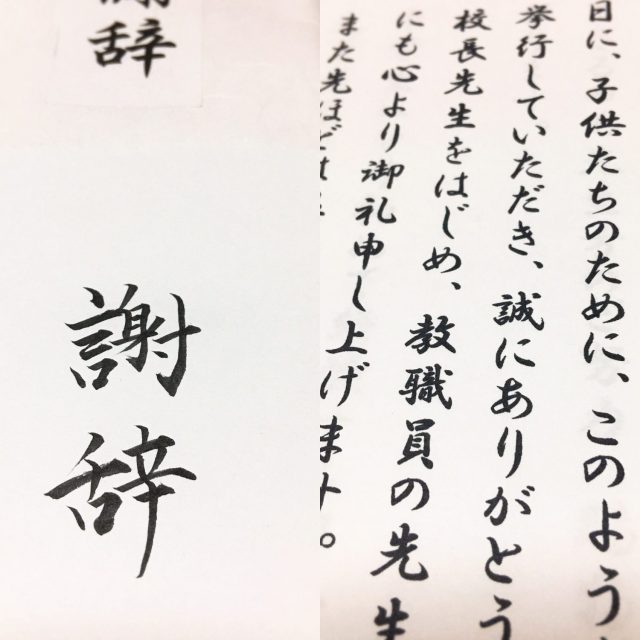 辞
謝辞
日に、子供たちのために、このよう
挙行していただき、誠にありがとう
校長先生をはじめ、教職員の先生
にも心より御礼申し上げます。
また先ほど